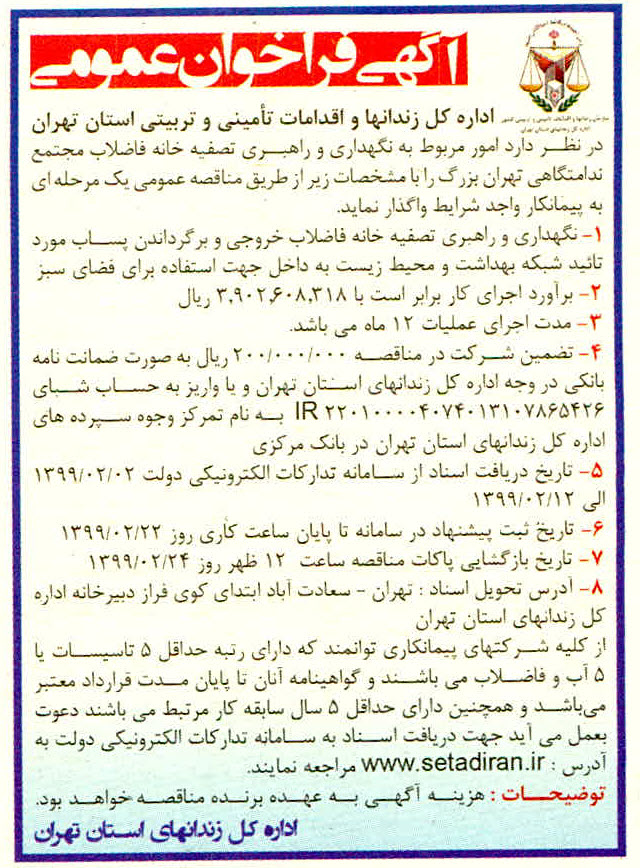 آگهی فراخوان عمومی
اداره کل زندانها و اقدامات تأمینی و تربیتی استان تهران
در نظر دارد امور مربوط به نگهداری و راهبری تصفیه خانه فاضلاب مجتمع
ندامتگاهی تهران بزرگ را با مشخصات زیر از طریق مناقصه عمومی یک مرحله ای
به پیمانکار واجد شرایط واگذار نماید.
۱- نگهداری و راهبری تصفیه خانه فاضلاب خروجی و برگرداندن پساب مورد
تائید شبکه بهداشت و محیط زیست به داخل جهت استفاده برای فضای سبز
۲- برآورد اجرای کار برابر است با ۳,۹۰۲,۶۰۸,۳۱۸ ریال
۳- مدت اجرای عملیات ۱۲ ماه می باشد.
۴- تضمین شرکت در مناقصه ۲۰۰/۰۰۰/۰۰۰ ریال به صورت ضمانت نامه
بانکی در وجه اداره کل زندانهای استان تهران و یا واریز به حساب شبای
IR ۲۲۰۱۰۰۰۰۴۰۷۴۰۱۳۱۰۷۸۶۵۴۲۶ به نام تمرکز وجوه سپرده های
اداره کل زندانهای استان تهران در بانک مرکزی
۵- تاریخ دریافت اسناد از سامانه تدارکات الکترونیکی دولت ۱۳۹۹/۰۲/۰۲
الی ۱۳۹۹/۰۲/۱۲
۶- تاریخ ثبت پیشنهاد در سامانه تا پایان ساعت کاری روز ۱۳۹۹/۰۲/۲۲
۷- تاریخ بازگشایی پاکات مناقصه ساعت ۱۲ ظهر روز ۱۳۹۹/۰۲/۲۴
۸- آدرس تحویل اسناد : تهران - سعادت آباد ابتدای کوی فراز دبیرخانه اداره
کل زندانهای استان تهران
از کلیه شرکتهای پیمانکاری توانمند که دارای رتبه حداقل ۵ تاسیسات یا
۵ آب و فاضلاب می باشند و گواهینامه آنان تا پایان مدت قرارداد معتبر
می‌باشد و همچنین دارای حداقل ۵ سال سابقه کار مرتبط می باشند دعوت
بعمل می آید جهت دریافت اسناد به سامانه تدارکات الکترونیکی دولت به
آدرس : www.setadiran.ir مراجعه نمایند.
توضیحات : هزینه آگهی به عهده برنده مناقصه خواهد بود.
اداره کل زندانهای استان تهران